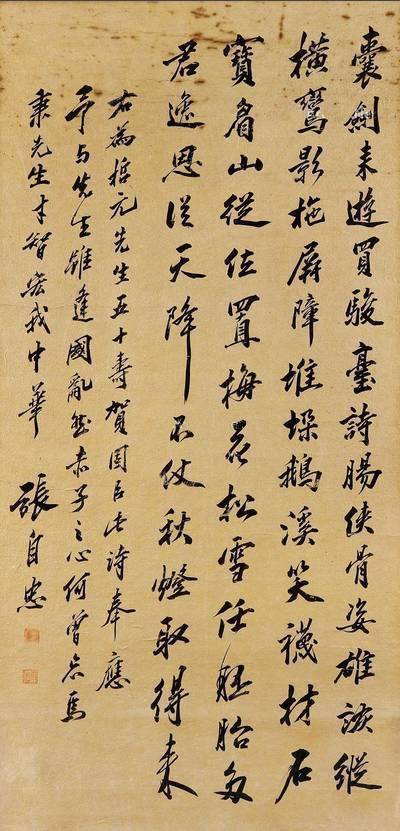 囊劍来遊買駿臺詩腸俠骨姿雄詼縱
橫鸞影拖屏障堆垛鵝溪笑襪材石
寶眉山從位置梅花松雪任胚胎多
君逸思從天降不仗秋燈取得来
右為哲元先生五十壽賀因占此詩奉應
予与先生雖逢國亂然赤子之心何曾忘焉
秉先生才智宏我中華
張自忠